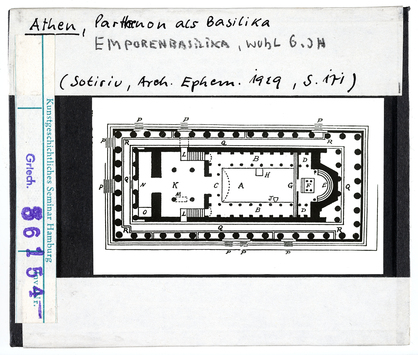 Athen, Parthenon als Basilika
EMPORENBASILIKA, WOHL 6. JH
(Sotiriu, Arch. Ephem. 1929, S. 171)
Kunstgeschichtliches Seminar Hamburg
Griech.
86154
P P P
R Q R
L B D
P N K C A H G F E Q
M
O B D
R Q R
P P P